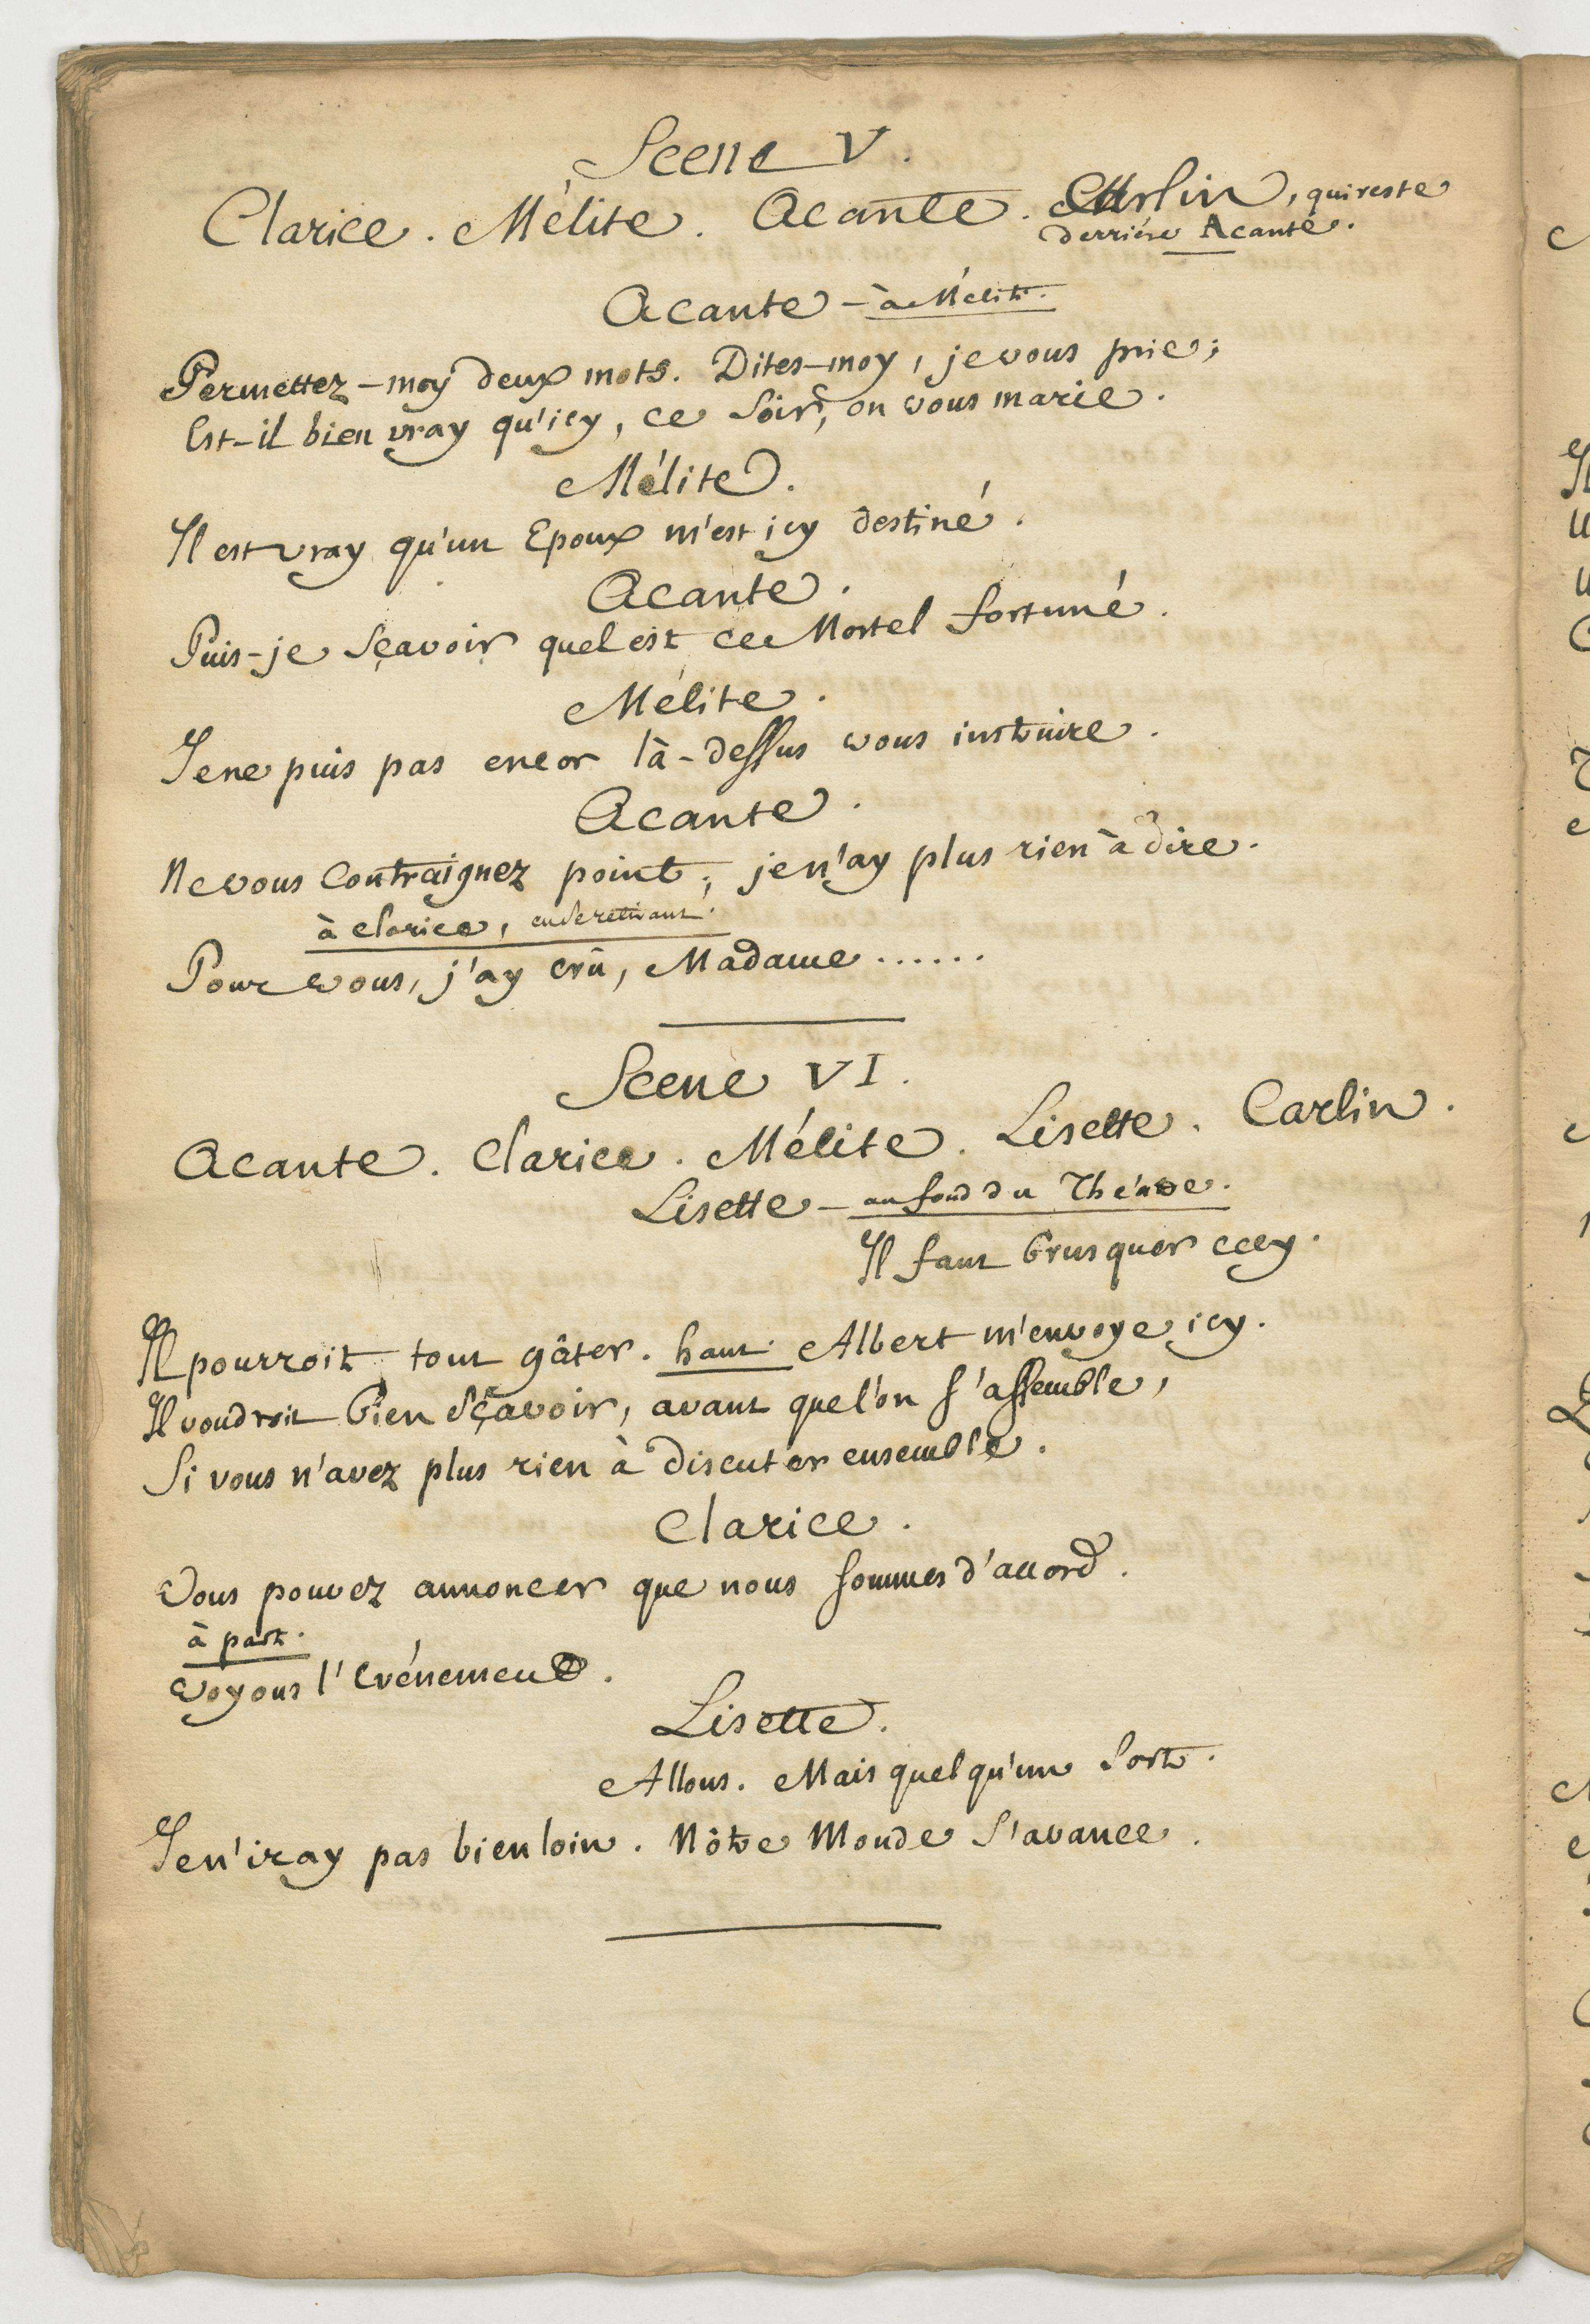 Scene V.
Clarice. Mélite. Acante. Carlin, qui reste
derriére Acante.
Acante - à Mélite.
Permettez-moy deux mots. Dites-moy, je vous prie;
Est-il bien vray qu'icy, ce soir, on vous marie.
Mélite.
Il est vray qu'un Epoux m'est icy destiné.
Acante.
Puis-je sçavoir quel est ce Mortel fortuné.
Mélite.
Je ne puis pas encor là-dessus vous instruire.
Acante.
Ne vous contraignez point; je n'ay plus rien à dire.
à Clarice, en se retirant.
Pour vous, j'ay crû, Madame ......
Scene VI.
Acante. Clarice. Mélite. Lisette. Carlin.
Lisette - au fond du Théatre.
Il faut brusquer cecy.
Il pourroit tout gâter. haut. Albert m'envoye icy.
Il voudroit bien sçavoir, avant que l'on s'assemble,
Si vous n'avez plus rien à discuter ensemble.
Clarice.
Vous pouvez annoncer que nous sommes d'accord.
à part.
Voyons l'Evénement.
Lisette.
Allons. Mais quelqu'un sort.
Je n'iray pas bien loin. Nôtre Monde s'avance.